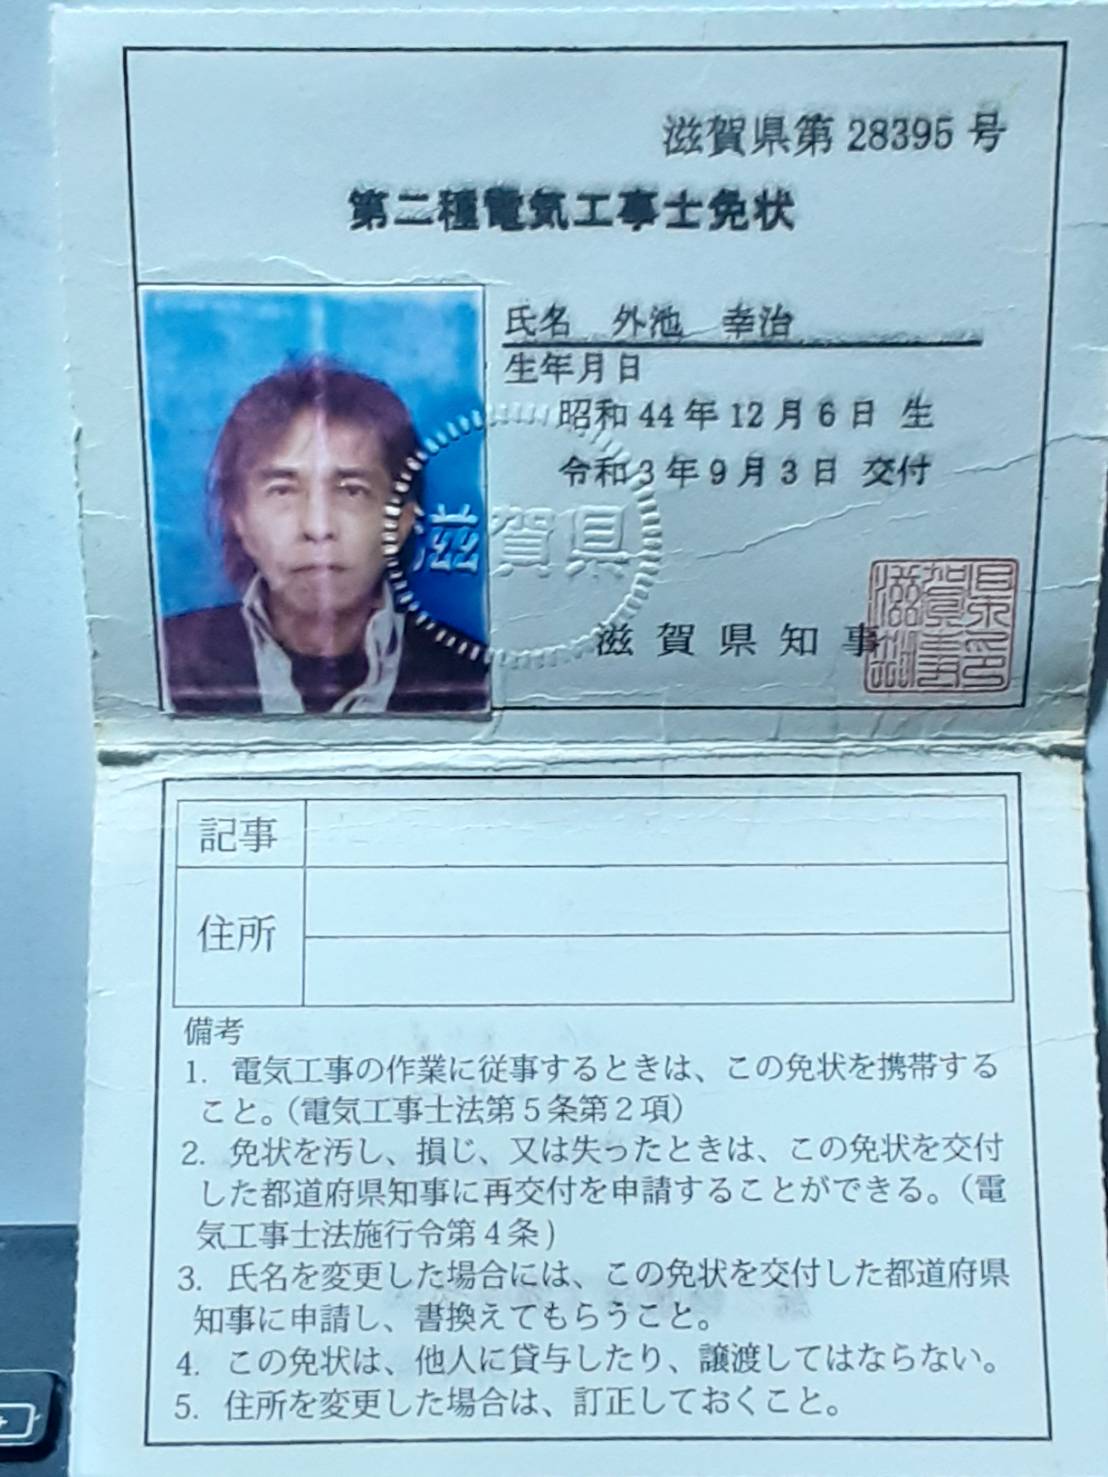 滋賀県第 28395 号
第二種電気工事士免状
氏名 外池 幸治
生年月日
昭和 44 年 12 月 6 日 生
令和 3 年 9 月 3 日 交付
滋賀県
滋賀県知事
記事
住所
備考
1. 電気工事の作業に従事するときは、この免状を携帯する
こと。(電気工事士法第5条第2項)
2. 免状を汚し、損じ、又は失ったときは、この免状を交付
した都道府県知事に再交付を申請することができる。(電
気工事士法施行令第4条)
3. 氏名を変更した場合には、この免状を交付した都道府県
知事に申請し、書換えてもらうこと。
4. この免状は、他人に貸与したり、譲渡してはならない。
5. 住所を変更した場合は、訂正しておくこと。